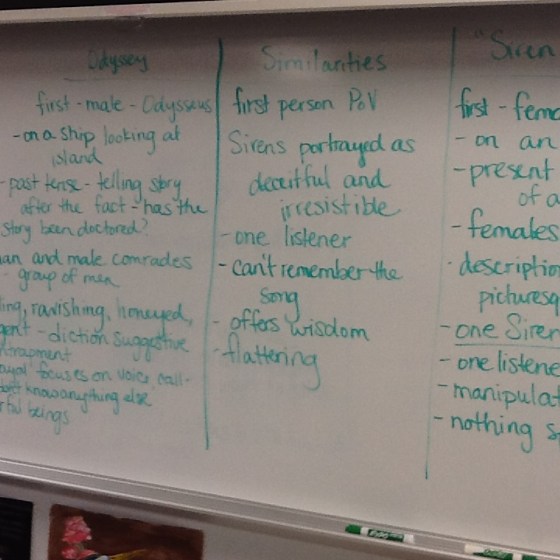 Odyssey
first - male - Odysseus
- on a ship looking at
island
- past tense - telling story
after the fact - has the
story been doctored?
an and male comrades
- group of men
ing, ravishing, honeyed,
gent - diction suggestive
ntrapment
focuses on voice call-
know anything else
ful beings
Similarities
first person PoV
Sirens portrayed as
deceitful and
irresistible
- one listener
- can't remember the
song
- offers wisdom
- flattering
"Siren
first - fema
- on an
- present
of a
- females
- descriptio
picturesq
- one Siren
- one listene
- manipulat
- nothing s